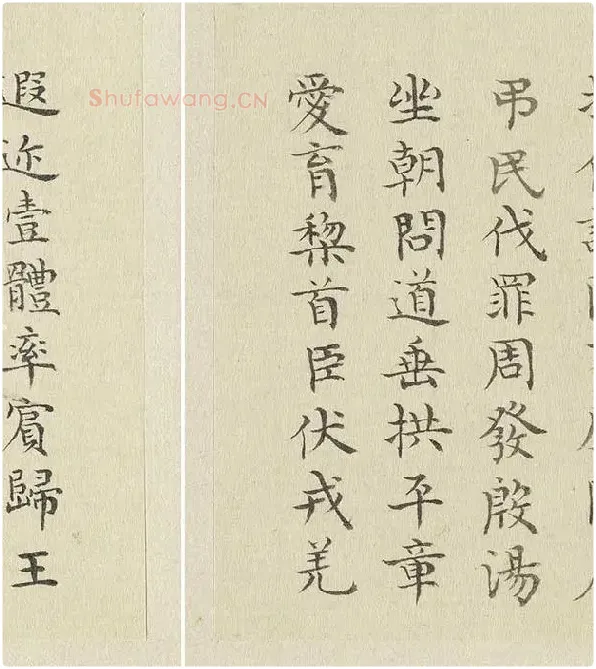 弔民伐罪周發殷湯
坐朝問道垂拱平章
愛育黎首臣伏戎羌
遐迩壹體率賓歸王
Shufawang.CN